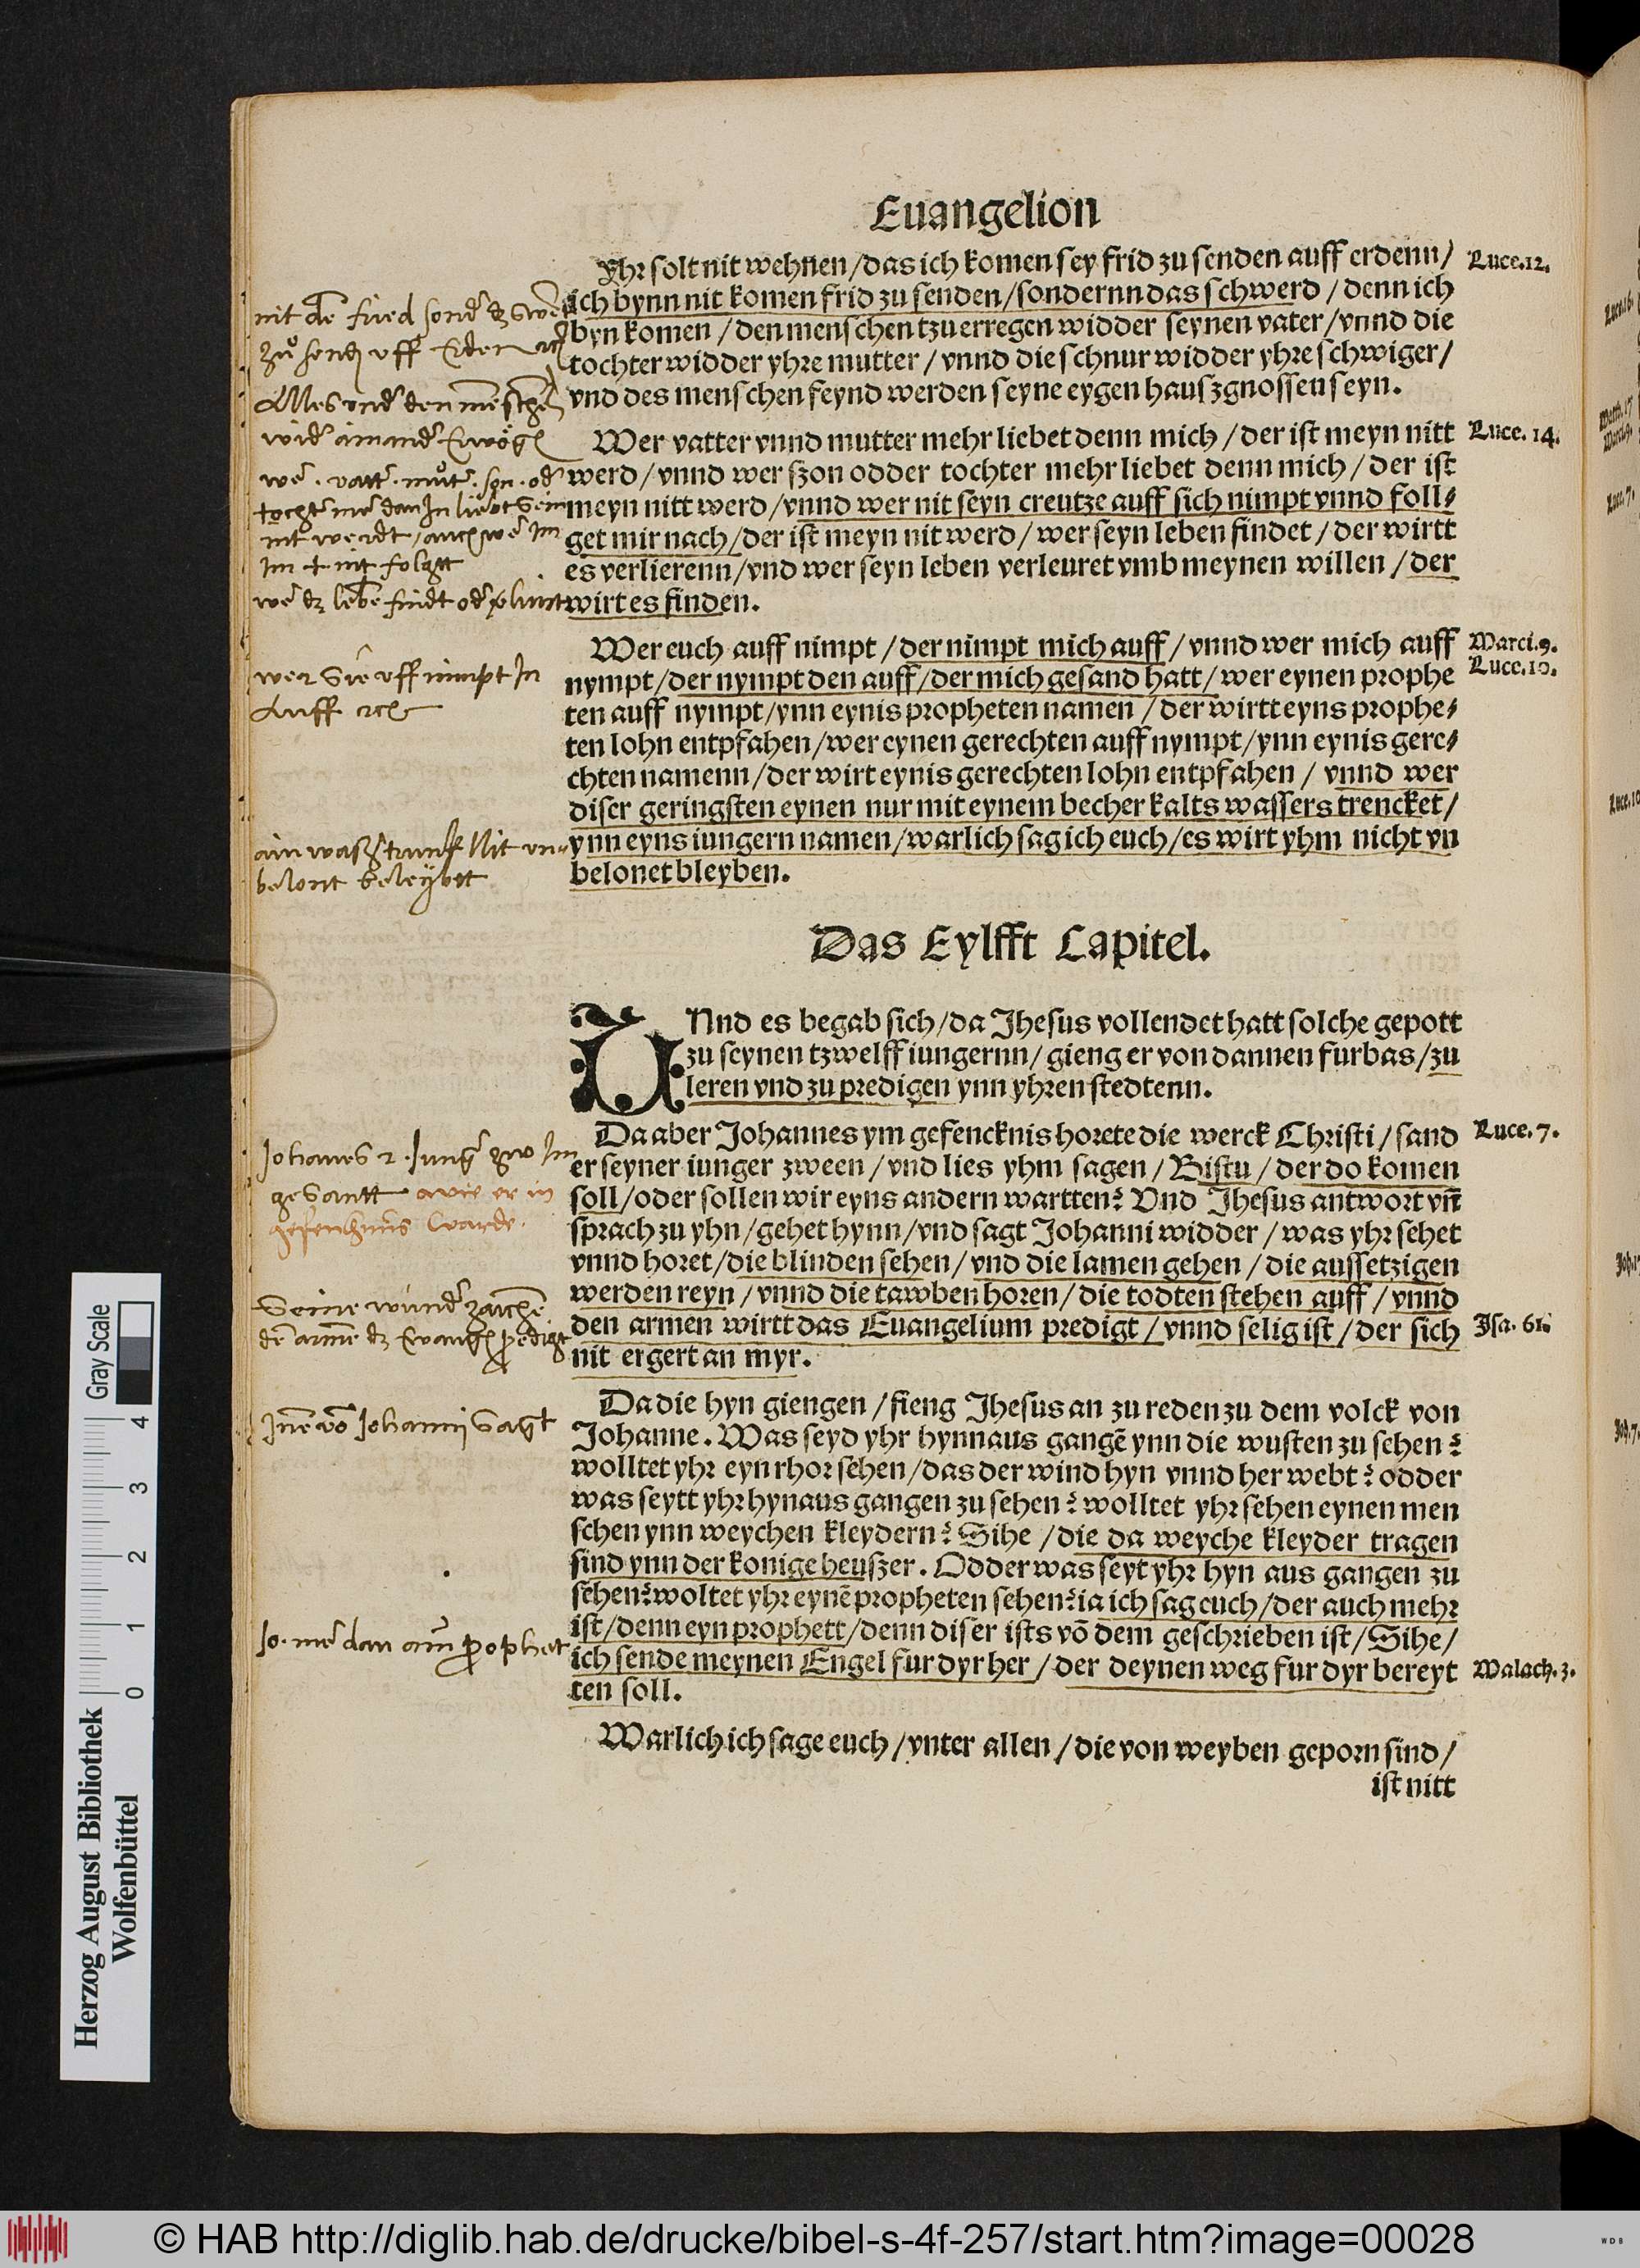 Euangelion
Yhr solt nit wehnen/das ich komen sey frid zu senden auff erdenn/
Luce.12.
ich bynn nit komen frid zu senden/sondernn das schwerd/denn ich
byn komen/den menschen tzu erregen widder seynen vater/vnnd die
tochter widder yhre mutter/vnnd die schnur widder yhre schwiger/
vnd des menschen feynd werden seyne eygen hauszgnossen seyn.
nit dē fried
zů
uff Erden
Alles
wid͛
Wer vatter vnnd mutter mehr liebet denn mich/der ist meyn nitt
Luce. 14.
werd/vnnd wer szon odder tochter mehr liebet denn mich/der ist
meyn nitt werd/vnnd wer nit seyn creutze auff sich nimpt vnnd foll⸗
get mir nach/der ist meyn nit werd/wer seyn leben findet/der wirtt
es verlierenn/vnd wer seyn leben verleuret vmb meynen willen/der
wirt es finden.
im + nit folgtt
Wer euch auff nimpt/der nimpt mich auff/vnnd wer mich auff
Marci.9.
nympt/der nympt den auff/der mich gesand hatt/wer eynen prophe
Luce.10.
ten auff nympt/ynn eynis propheten namen/der wirtt eyns prophe⸗
ten lohn entpfahen/wer eynen gerechten auff nympt/ynn eynis gere⸗
chten namenn/der wirt eynis gerechten lohn entpfahen/vnnd wer
diser geringsten eynen nur mit eynem becher kalts wassers trencket/
ynn eyns iungern namen/warlich sag ich euch/es wirt yhm nicht vn
belonet bleyben.
wer Sie uff nimpt In
Auff
belont beleybtt
Das Eylfft Capitel.
VNnd es begab sich/da Jhesus vollendet hatt solche gepott
zu seynen tzwelff iungernn/gieng er von dannen furbas/zu
leren vnd zu predigen ynn yhren stedtenn.
Da aber Johannes ym gefencknis horete die werck Christi/sand
Luce. 7.
er seyner iunger zween/vnd lies yhm sagen/Bistu/der do komen
soll/oder sollen wir eyns andern wartten? Vnd Jhesus antwort vn̄
sprach zu yhn/gehet hynn/vnd sagt Johanni widder/was yhr sehet
vnnd horet/die blinden sehen/vnd die lamen gehen/die aussetzigen
werden reyn/vnnd die tawben horen/die todten stehen auff/vnnd
den armen wirtt das Euangelium predigt/vnnd selig ist/der sich
Jsa. 61.
nit ergert an myr.
Johanes 2. Jung͛ zwo Im
gesantt wie er in
gefenchnus warde.
Da die hyn giengen/fieng Jhesus an zu reden zu dem volck von
Johanne. Was seyd yhr hynnaus gangē ynn die wusten zu sehen?
wolltet yhr eyn rhor sehen/das der wind hyn vnnd her webt? odder
was seytt yhr hynaus gangen zu sehen? wolltet yhr sehen eynen men
schen ynn weychen kleydern? Sihe/die da weyche kleyder tragen
sind ynn der konige heuszer. Odder was seyt yhr hyn aus gangen zu
sehen? woltet yhr eynē propheten sehen? ia ich sag euch/der auch mehr
ist/denn eyn prophett/denn diser ists vō dem geschrieben ist/Sihe/
ich sende meynen Engel fur dyr her/der deynen weg fur dyr bereyt
Malach.3.
ten soll.
Johanni Sagt
Jo. mer dan ain prophet
Warlich ich sage euch/vnter allen/die von weyben geporn sind/
ist nitt
Herzog August Bibliothek
Wolfenbüttel
Gray Scale
0 1 2 3 4
© HAB http://diglib.hab.de/drucke/bibel-s-4f-257/start.htm?image=00028
WDB